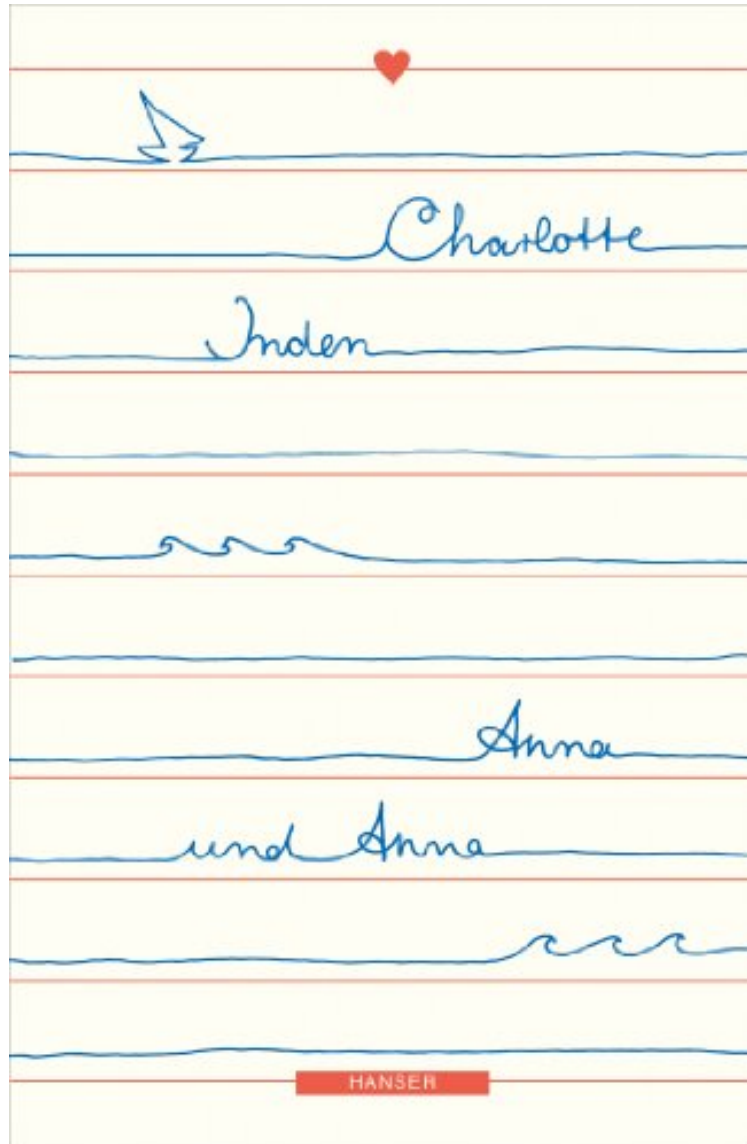 Charlotte
Inden
Anna
und Anna
HANSER